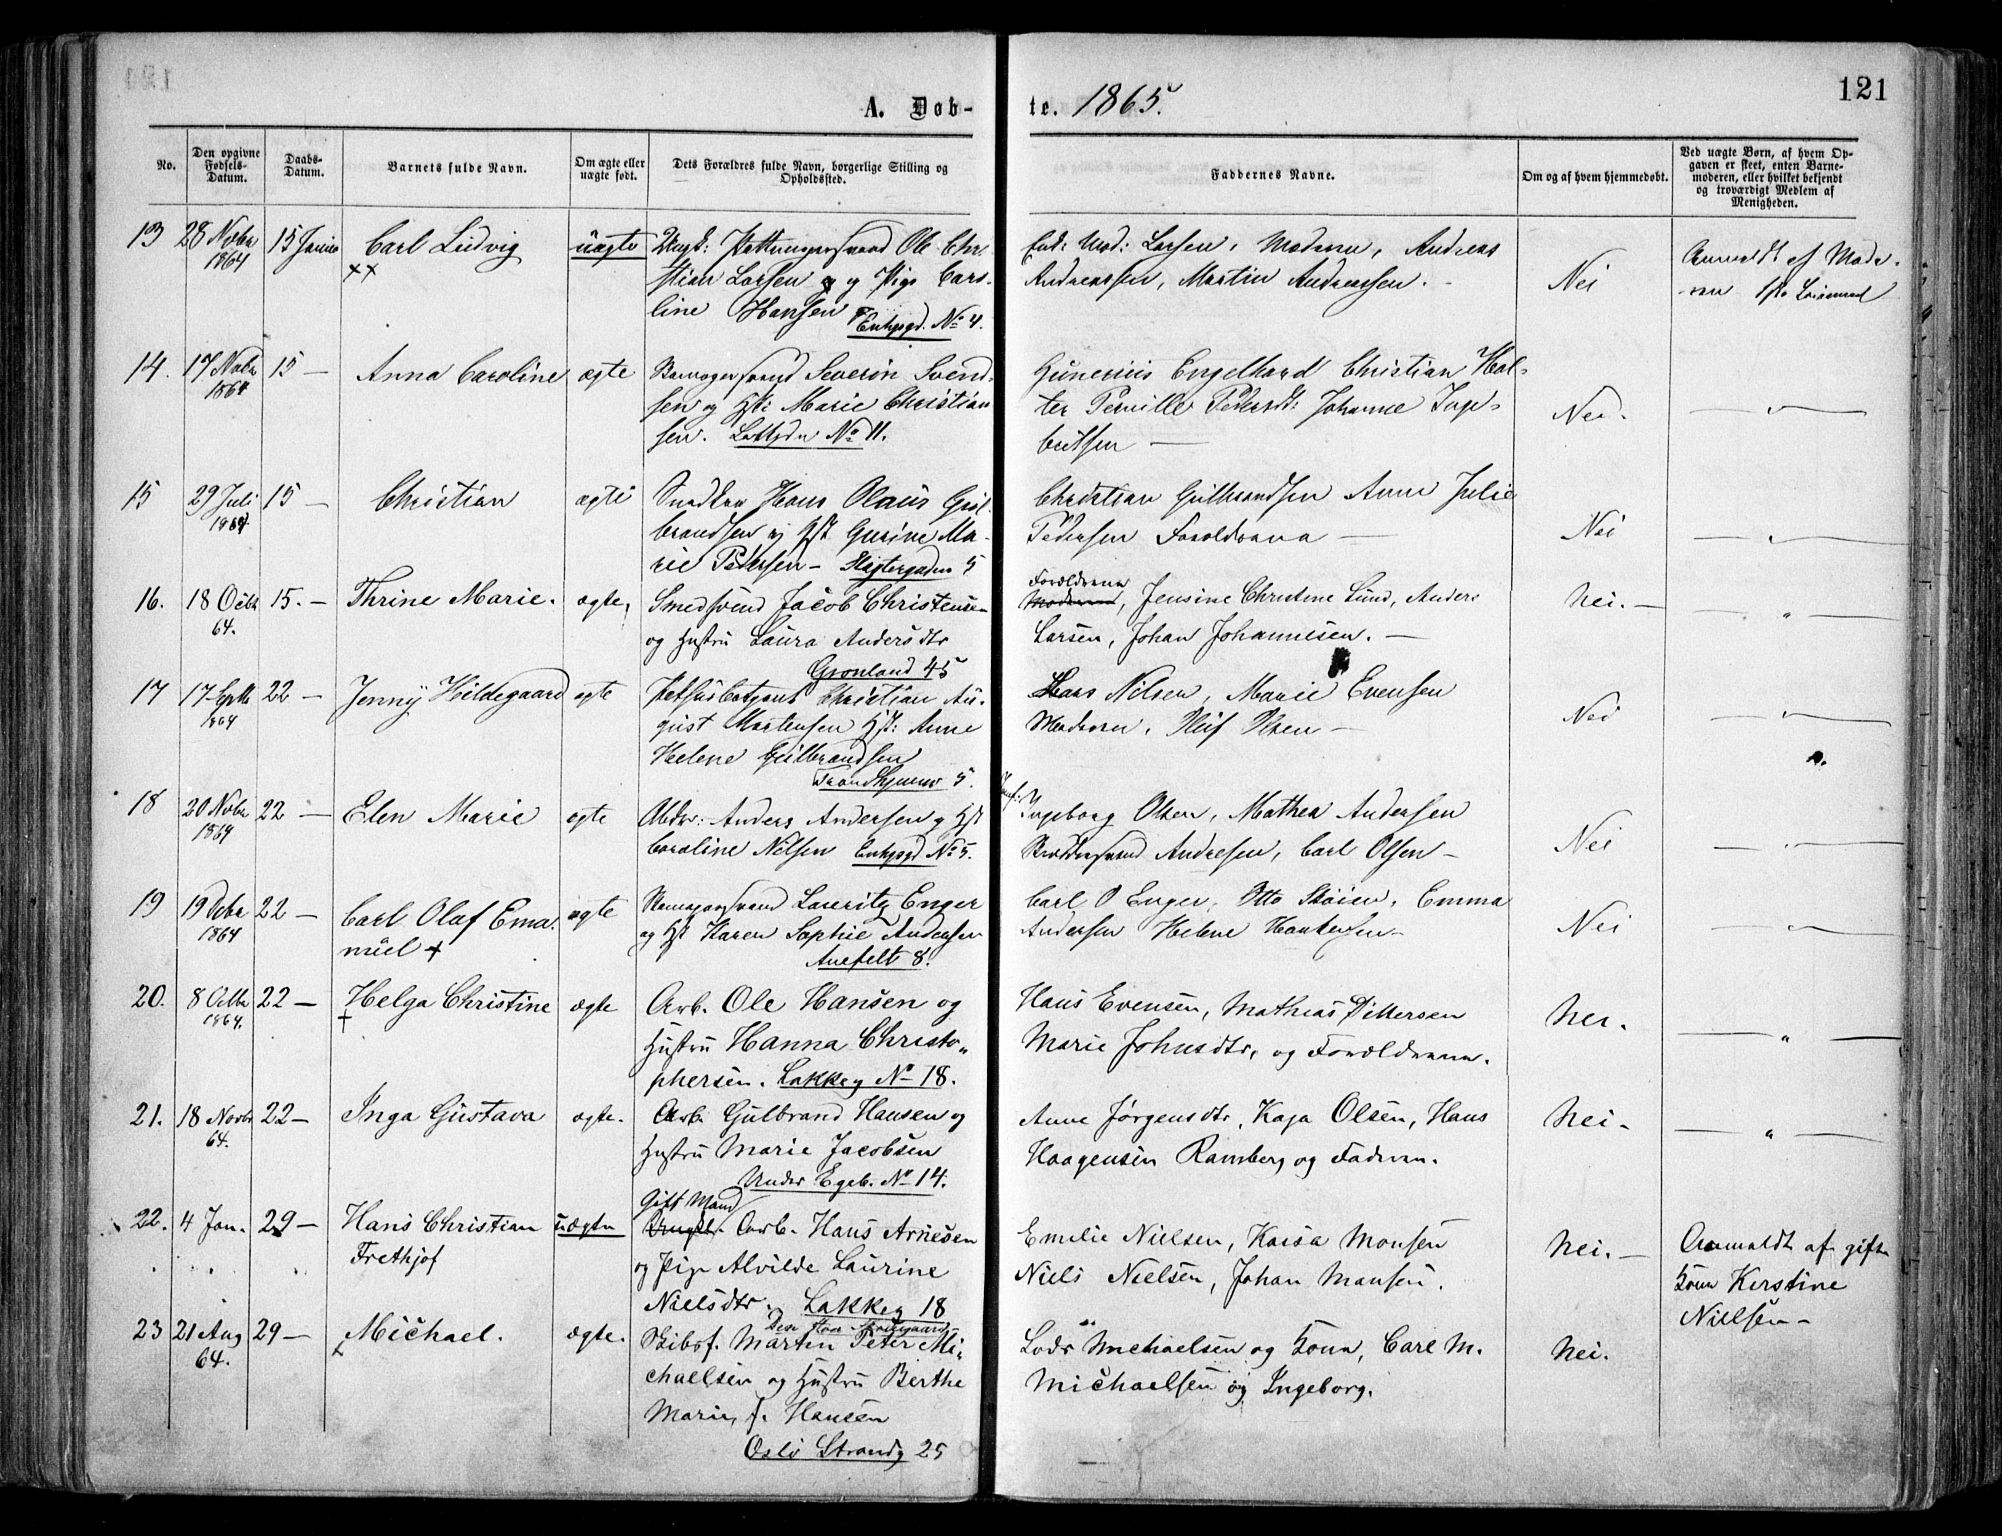 121
A. Döb-
te. 1865.
No.
Den opgivne Fødsels-Datum.
Daabs-Datum.
Barnets fulde Navn.
Om ægte eller uægte født.
Dets Forældres fulde Navn, borgerlige Stilling og Opholdssted.
Faddernes Navne.
Om og af hvem hjemmedøbt.
Ved uægte Børn, af hvem Opgaven er skeet, enten Barnemoderen, eller hvilket bekjendt og troværdigt Medlem af Menigheden.
13 28 Novbr 1864 15 Januar Carl Ludvig uægte Ole Chri-
xx
stian Larsen og Pige Caro-
line Hansen Enkgsgd. No 4.
Larsen, Moderen, Andreas
Andreassen, Martin Andreassen.
Nei
Anmeldt af Mode-
ren
14. 17 Novbr 1864 15 — Anna Caroline ægte Severin Svend-
sen og Hst: Marie Christian
sen. No 11.
Gunerius Engelhard Christian Hal-
ter Pernille Pedersdt: Johanne Inge-
britsen —
Nei.
— " —
15 29 Juli 1864 15 — Christian ægte Snedker Hans Olaus Gul-
brandsen og Hst Gurine Ma-
rie Pedersen — Slagtergaden 5
Christian Gulbrandsen Anne Julie
Pedersen Forældrene —
Nei
— " —
16. 18 Octbr 64. 15. — Thrine Marie. ægte, Smedsvend Jacob Christensen
og Hustru Laura Andersdtr
Grønland 45
Forældrene
Moderen, Jensine Christine Lund, Anders
Larsen, Johan Johannesen. —
Nei. —
"
17 17 Septb 1864 22 — Jenny Hildegaard ægte Christian Au-
gust Mortensen Hst: Anne
Helene Gulbrandsen
5.
Lars Nilsen, Marie Evensen
Moderen, Olsen —
Nei
— " —
18 20 Novbr 1864 22 — Elen Marie ægte Abdr: Anders Andersen og Hst
Caroline Nilsen Enkgsgd No 5.
Ingeborg Olsen, Mathea Andersen
Andresen, Carl Olsen —
Nei
— " —
19 19 Debr 1864 22 — Carl Olaf Ema- ægte Lauritz Enger
nuel +
og Hst Karen Sophie Andersen
8.
Carl O Enger, Otto Støien, Emma
Andersen Helene
Nei
— " —
20. 8 Octbr 1864. 22 — Helga Christine ægte Arb. Ole Hansen og
†
Hustru Hanna Christo-
phersen. Lakkeg No 18.
Hans Evensen, Mathias Pettersen
Marie Johnsdtr, og Forældrene.
Nei.
— " —
21. 18 Novbr 64. 22 — Inga Gustava ægte. Arb. Gulbrand Hansen og
Hustru Marie Jacobsen
Under Egeb. No 14.
Anne Jørgensdtr, Kaja Olsen, Hans
Haagensen Ramberg og Faderen.
Nei.
— " —
22. 4 Jan. 29 — Hans Christian uægte Gift Mand
Frethjof
Ungk. Arb. Hans Arnesen
og Pige Alvilde Laurine
Nielsdtr. Lakkeg 18
Emilie Nielsen, Kaisa Monsen
Niels Nielsen, Johan Monsen.
Nei. —
Anmeldt af gift
Kone Kerstine
Nielsen —
23 21 Aug 64. 29 — Michael. ægte. Skibsf. Martin Peter Mi-
chaelsen og Hustru Berthe
Marie, f. Hansen
Oslo Strandg 25
Lods Michaelsen og Kone, Carl M.
Michaelsen og Ingeborg.
Nei.